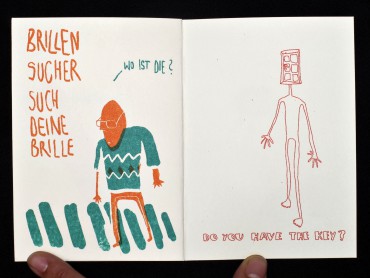 BRILLEN
SUCHER
SUCH
DEINE
BRILLE
WO IST DIE?
DO YOU HAVE THE KEY?